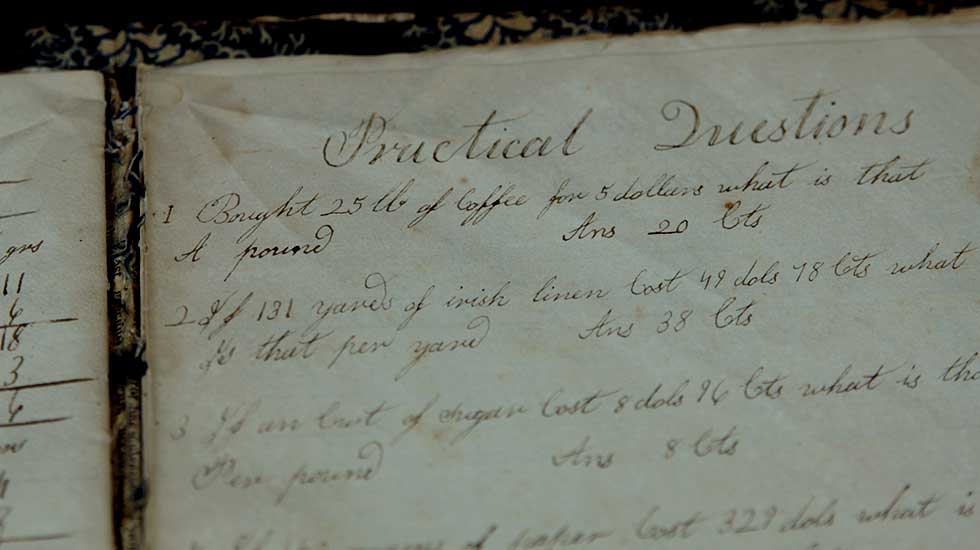 grs
11
6
18
3
6
Practical Questions
1 Bought 25 lb of Coffee for 5 dollars what is that
A pound Ans 20 Cts
2 If 131 yards of irish linen Cost 49 dols 78 Cts what
Is that per yard Ans 38 Cts
3 If an Cwt of sugar Cost 8 dols 96 Cts what is tha
Per pound Ans 8 Cts
of paper Cost 329 dols what is